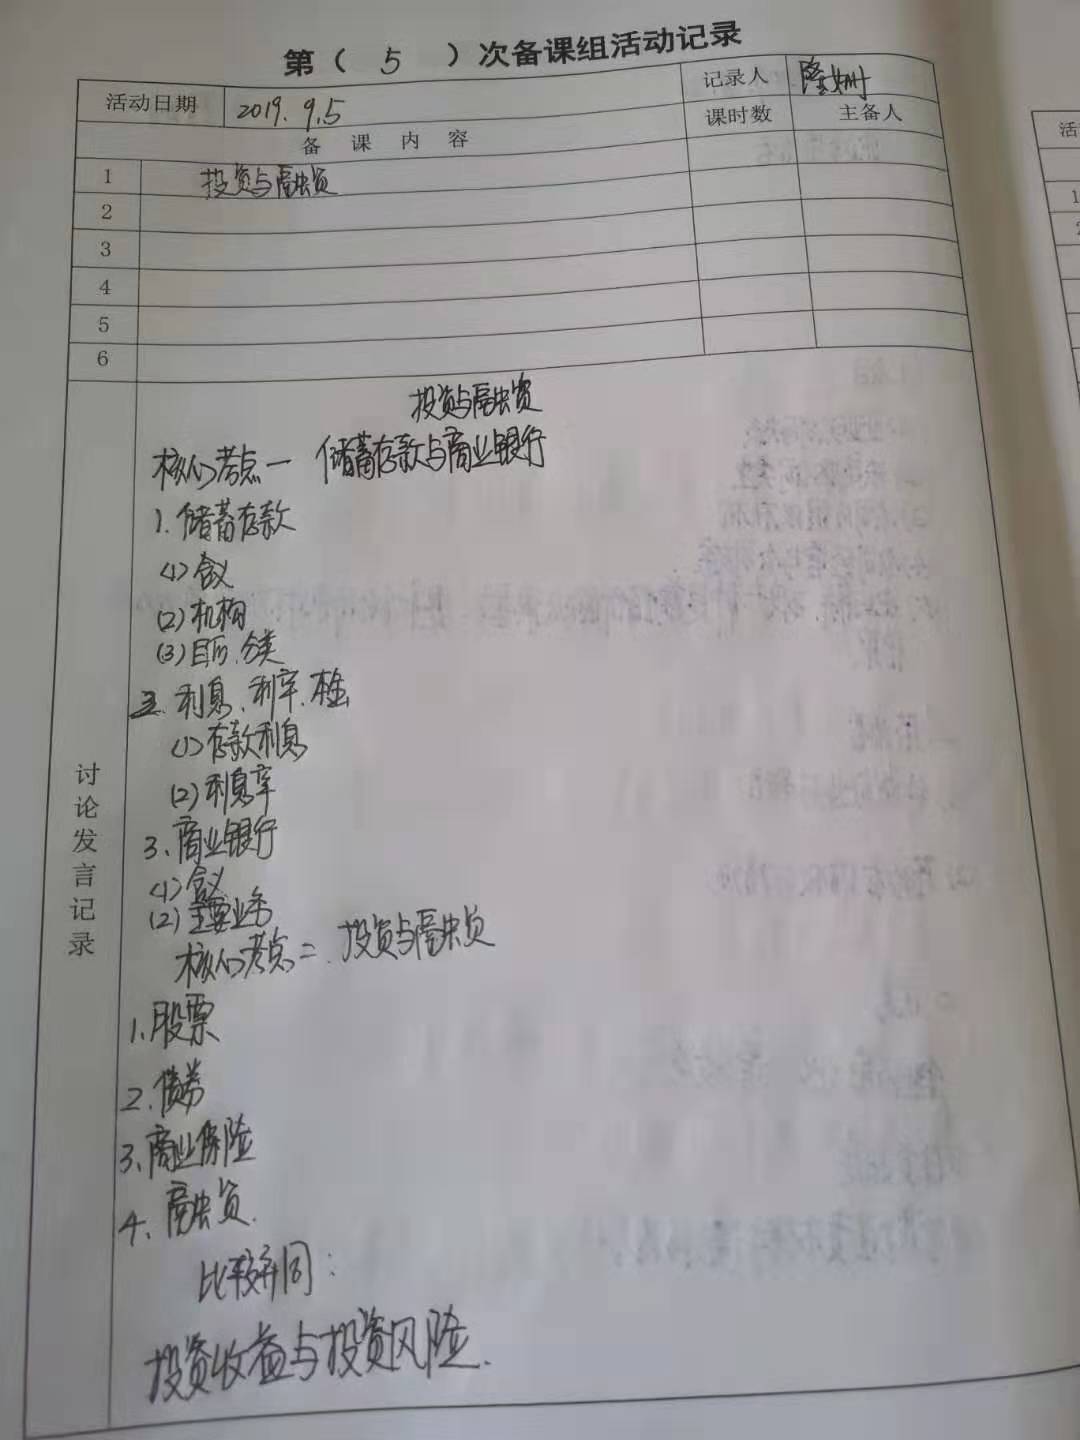 第（ 5 ）次备课组活动记录
活动日期 2019.9.5 记录人
备课内容 课时数 主备人
1 投资与融资
2
3
4
5
6
讨论发言记录
投资与融资
核心考点一 储蓄存款与商业银行
1.储蓄存款
(1)含义
(2)机构
(3)目的、分类
2.利息、利率、本金
(1)存款利息
(2)利息率
3、商业银行
(1)含义
(2)主要业务
核心考点二、投资与融资
1、股票
2、债券
3、商业保险
4、融资.
比较异同：
投资收益与投资风险.